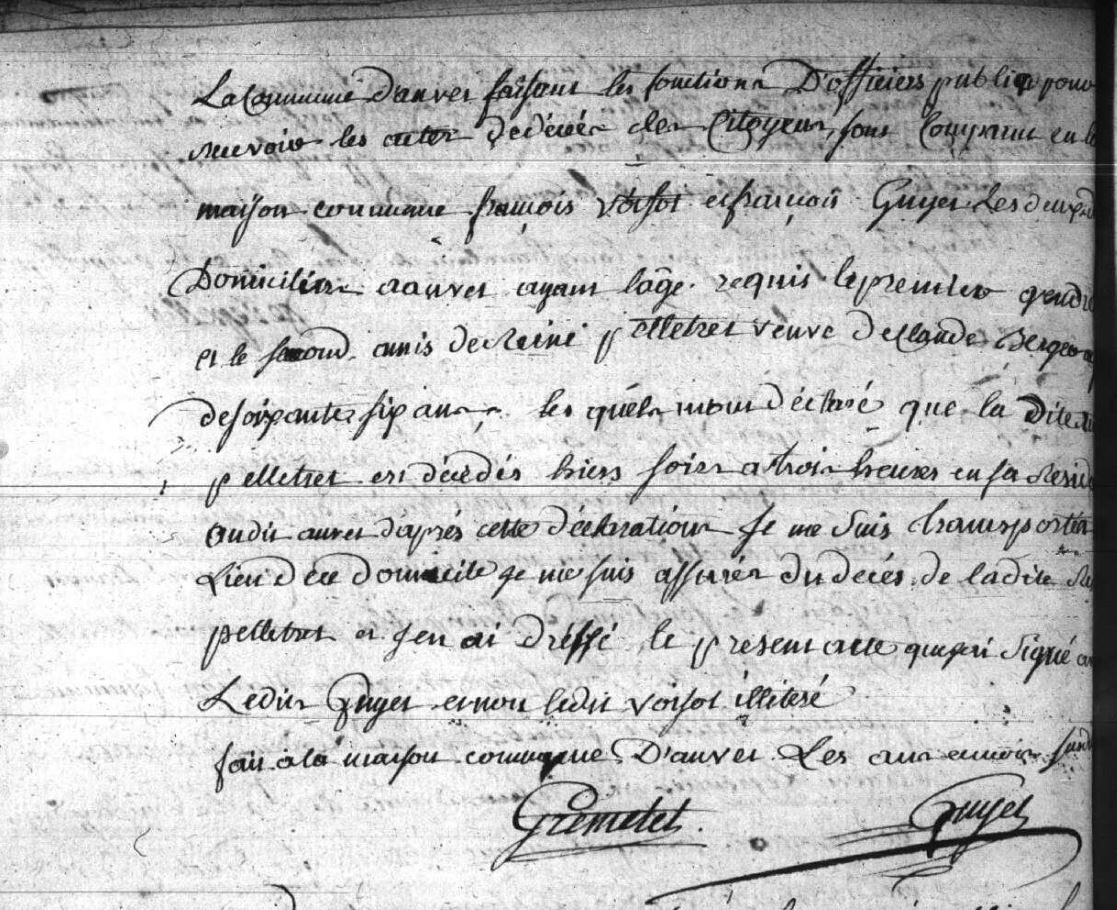 La Commune d'auvet faisant les fonctions D'officiers public pour
recevoir les actes de décés des Citoyens, sont Comparus en la
maison commune francois voisot et françois Guyet Les deux
Domiciliés a auvet ayant lâge requis le premier gendre
et le second amis de Reine pelletret veuve de Claude
de soixante six ans les quels mont déclaré que la dite
pelletret est décédés hiers soirs a trois heures en sa
au dit auvet d'aprés cette déclaration je me suis transportés
Lieu de ce domicile je me suis assurés du decés de ladite
pelletret et jen ai dressé le present acte que jai signé
Ledit Guyet et non ledit voisot illiteré
fait a la maison commune D'auvet Les ans et mois
Gremetet Guyet